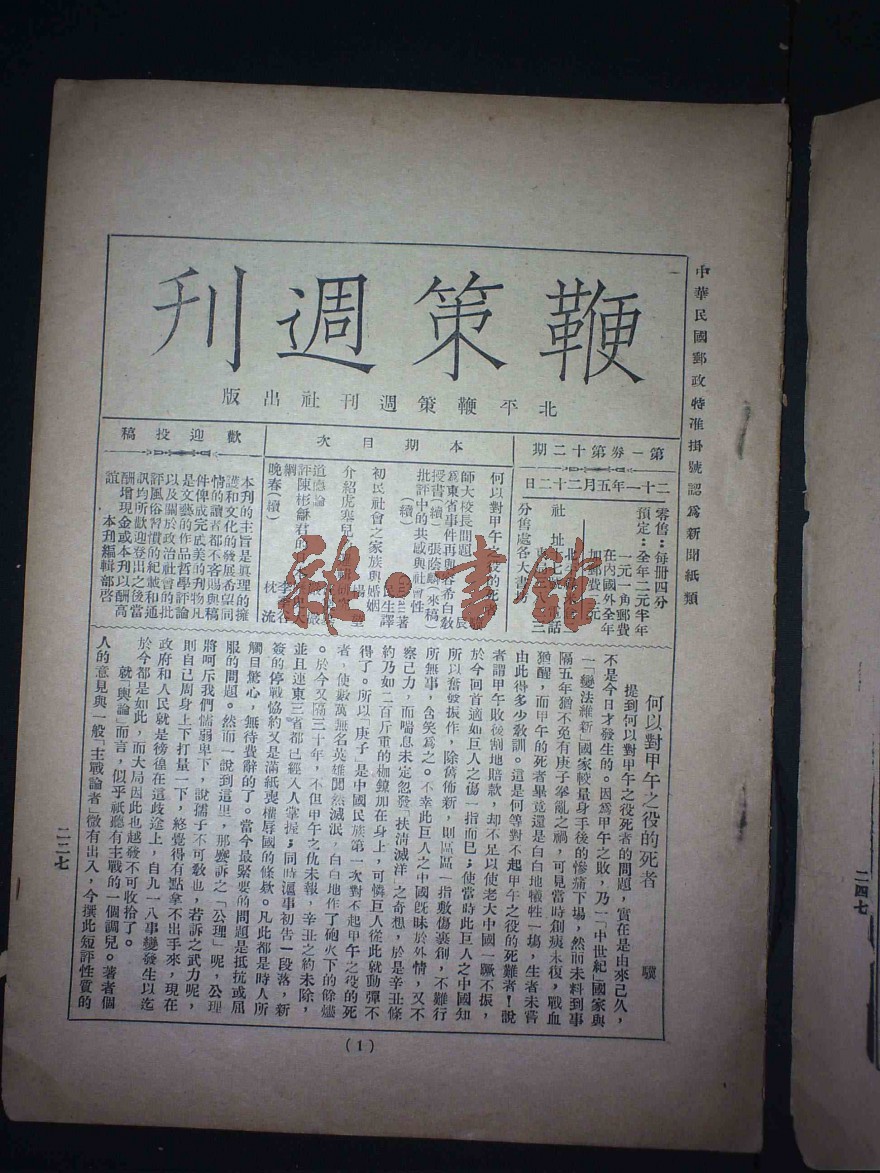 中華民國郵政特准掛號認爲新聞紙類
鞭策週刊
北平鞭策週刊社出版
第一券第十二期
二十一年五月二十二日
零售：每冊四分
預定：全年二元半年
一元一角郵費
在內國外全年
加郵費
社址
分售處各大書
本期目次
何以對甲午之役的死者
師大校長問題
爲東省事件再與容希白教
授書(續) 張蔭麟(來稿)
批評中的共感與社會性
(續)
初民社會之家族與婚姻
民生譯
介紹虎塞兒
道德論
評陳彬龢君的
綱
晚春(續)
枕流
歡迎投稿
本刊的主旨是眞理的擁
護和文化的發展希望同
情的讀者都不客賜與稿
件俾成完底美的刊物凡
是文藝的作品哲學評論
以及關於政治社會的批
評風俗習慣的紀載和通
訊均所歡迎登出之後當
酬增現金或本刊以酬高
誼 本刊編輯部啓
何以對甲午之役的死者
驥
提到何以對甲午之役死者的問題，實在是由來已久，
不是今日才發生的。因爲甲午之敗，乃一「中世紀」國家與
一「變法維新」國家較量身手後的慘痛下場，然而未料到事
隔五年猶不免有庚子拳亂之禍，可見當時創痍未復，戰血
猶醒，而甲午的死者畢竟還是白白地犧牲一場，生者未嘗
由此得多少敎訓。這是何等對不起甲午之役的死難者！說
者謂甲午敗後割地賠款，却不足以使老大中國一蹶不振，
於今回首適如巨人之傷一指而已；使當時此巨人之中國知
所以奮蛟振作，除舊佈新，則區區一指敷傷裹創，不難行
所無事，含笑爲之。不幸此巨人之中國旣昧於外情，又不
察己力，而喘息未定忽發「扶淸滅洋」之奇想，於是辛丑條
約乃如二百斤重的枷鐐加在身上，可憐巨人從此就動彈不
得了。所以「庚子」是中國民族第一次對不起甲午之役的死
者，使數萬無名英雄闃然滅泯，白白地作了砲火下的餘燼
。於今又隔三十年，不但甲午之仇未報，辛丑之約未除，
並且連東三省都已經入人掌握；同時滬事初告一段落，新
簽的停戰協約又是滿紙喪權辱國的條欵。凡此都是時人所
觸目驚心，無待費辭的了。當今最緊要的問題是抵抗或屈
服的問題。然而一說到這里，那麼訴之「公理」呢，公理
將呵斥我們懦弱卑下，說孺子不可敎也，若訴之武力呢，
則自己周身上下打量一下，終覺得有點拿不出手來，現在
政府和人民就是徬徨在這歧途上，自九一八事變發生以迄
於今都是如此，而大局因此也越發不可收拾了。
就「輿論」而言，似乎祇聽有主戰的一個調兒。著者個
人的意見與一般「主戰論者」微有出入，今撰此短評性質的
二三七
(1)
二四七
雜·書館